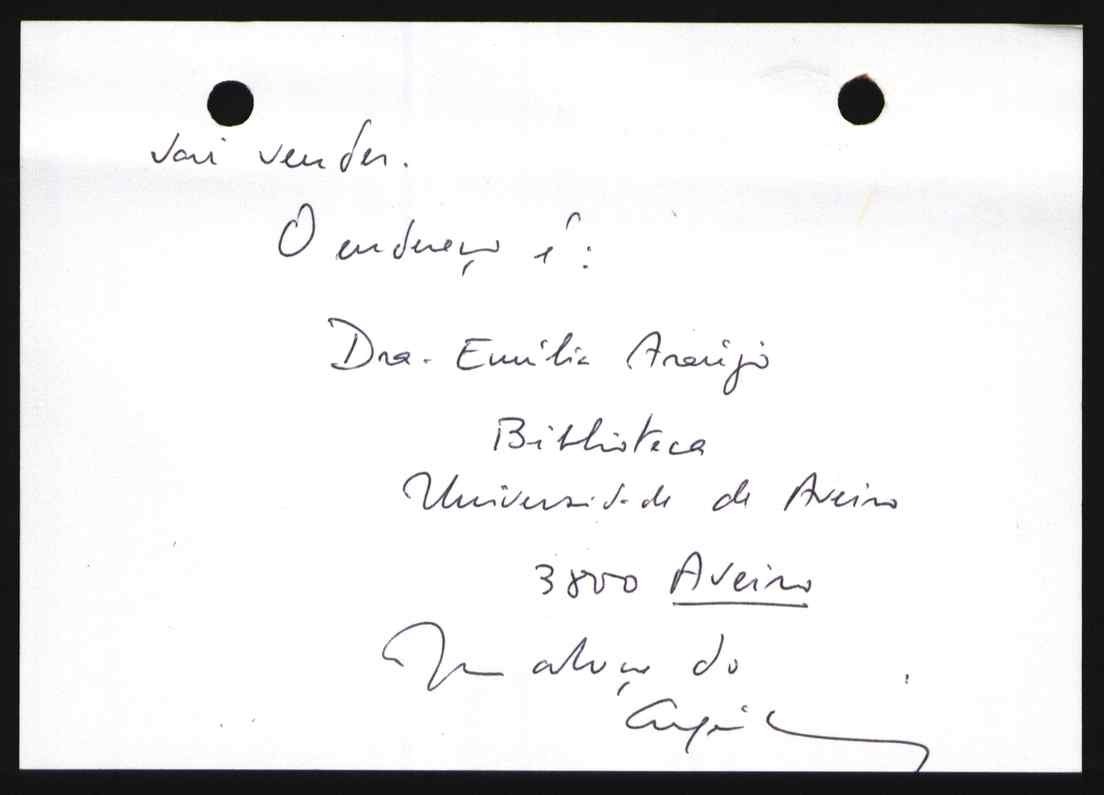 vai vender.
O endereço é:
Dra. Emília Araújo
Biblioteca
Universidade de Aveiro
3800 Aveiro
Um abraço do